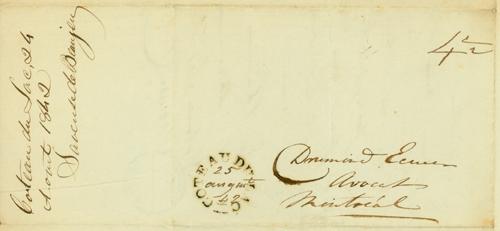 Coteau du Lac, 24
Août 1842
Saveuse de Beaujeu
4 1/2
COTEAU DU LAC
25
August
42
Drumond Ecuier
Avocat
Montréal